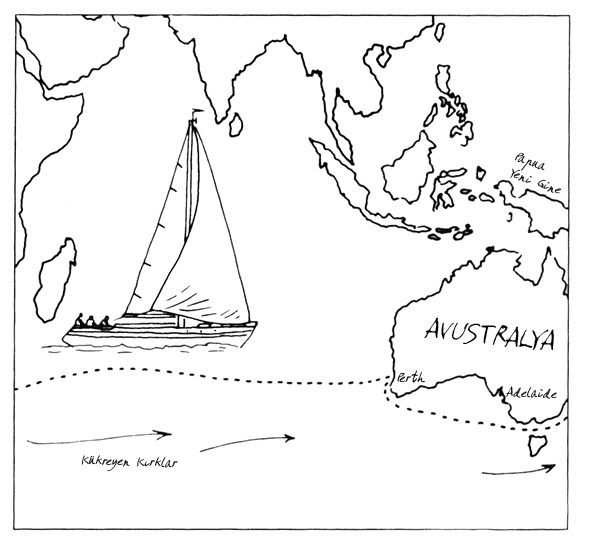 Papua
Yeni Gine
AVUSTRALYA
Perth
Adelaide
Kükreyen Kırklar